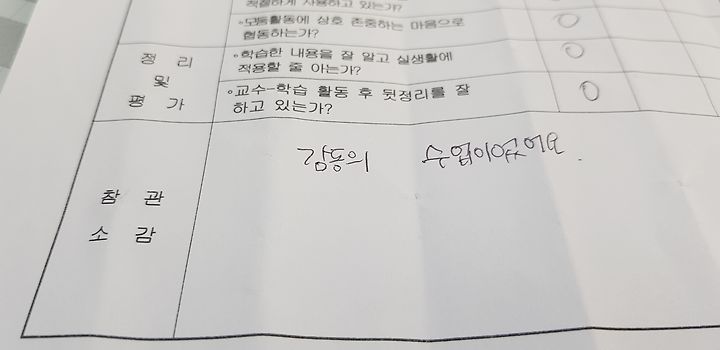 적절하게 사용하고 있는가?
◦모둠활동에 상호 존중하는 마음으로
협동하는가?
정 리
및
평 가
◦학습한 내용을 잘 알고 실생활에
적용할 줄 아는가?
◦교수-학습 활동 후 뒷정리를 잘
하고 있는가?
참 관
소 감
감동의 수업이었어요.